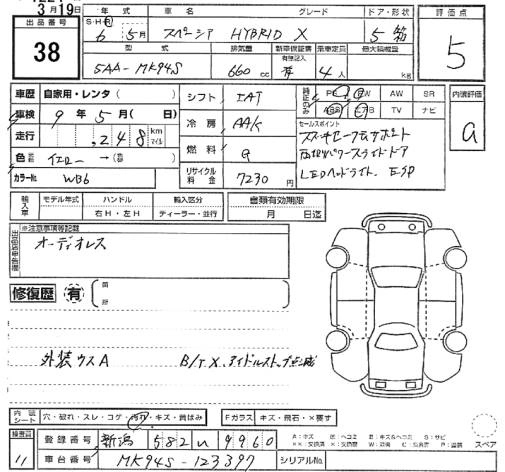 3月19日
出品番号
38
年式 車名 グレード ドア・形状
S・H・R
6 5月 スペーシア HYBRID X 5 箱
型式 排気量 新車保証書 乗車定員 最大積載量
有無記入
5AA-MK94S 660 cc 有 4人 kg
評価点
5
車歴 自家用・レンタ( )
車検 9年 5月( 日)
走行 , 248 km マイル
色 イエロー → (色替)
カラーNo. WB6
シフト IAT
冷房 AAC
燃料 G
リサイクル料金 7230円
純正のみ PS PW AW SR
ABS エアB TV ナビ
セールスポイント
スズキセーフティサポート
両側パワースライドドア
LEDヘッドライト ESP
内装評価
a
輸入車 モデル年式 ハンドル 輸入区分
年 右H・左H ディーラー・並行
書類有効期限
月 日迄
※注意事項等記載
オーディオレス
修復歴 有 箇所
外装ウスA B/T X. アイドルストップ
内装シート 穴・破れ・スレ・コゲ・汚れ・キズ・荷はみ
Fガラス キズ・飛石・×要す
検査員
11
登録番号 新潟 582 い 9960
車台番号 MK94S-123397 シリアルNo.
A:キズ U:ヘコミ B:キズ&ヘコミ S:サビ
スペア